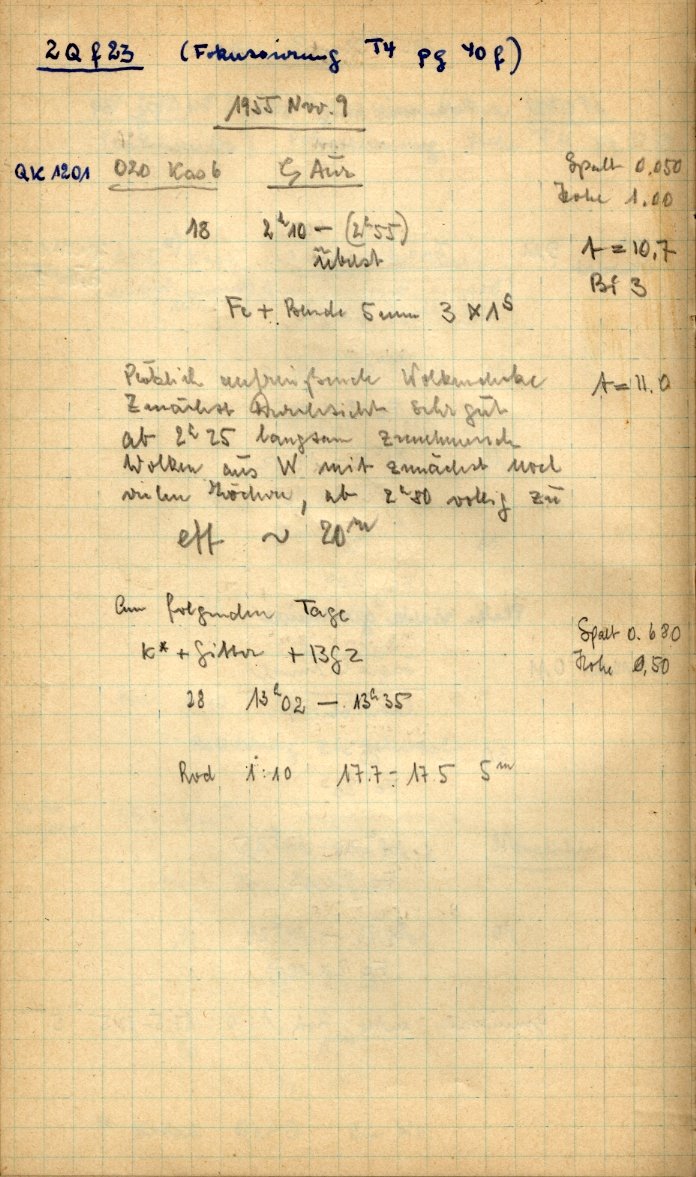 2Q f 23 (Fokussierung T4 pg 40f)
1955 Nov. 9
QK 1201 020 Kaob ζ Aur Spalt 0,050
Höhe 1.00
18 2ʰ10 – (2ʰ55)
A = 10,7
Bf 3
Fe + Blende 5mm 3 × 1ˢ
Plötzlich aufreißende Wolkendecke A = 11.0
Zunächst Durchsicht sehr gut
ab 2ʰ25 langsam zunehmend
Wolken aus W mit zunächst noch
vielen Löchern, ab 2ʰ50 völlig zu
eff ~ 20ᵐ
Am folgenden Tage
K* + Gitter + BG2 Spalt 0.680
Höhe 0,50
28 13ʰ02 – 13ʰ35
Rod 1:10 17.7 – 17.5 5ᵐ